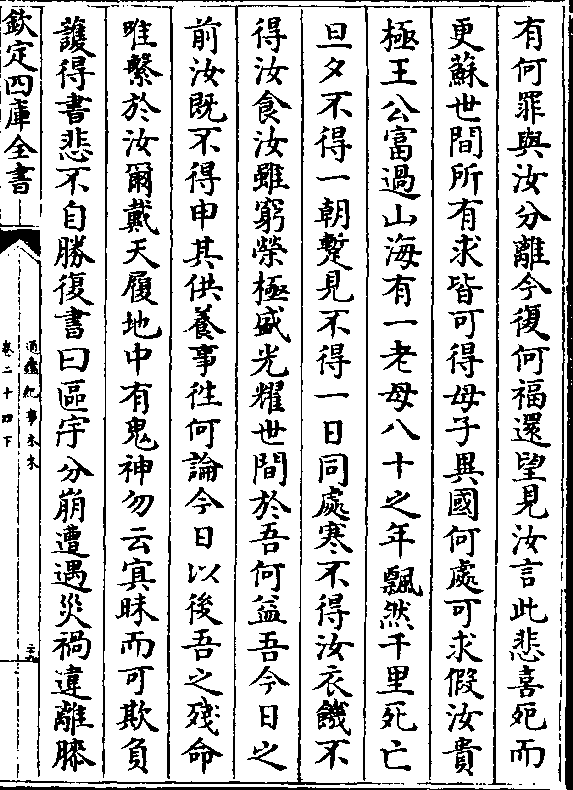 有何罪與汝分離今復何福還望見汝言此悲喜死而
更蘇世間所有求皆可得母子異國何處可求假汝貴
極王公富過山海有一老母八十之年飄然千里死亡
旦夕不得一朝蹔見不得一日同處寒不得汝衣饑不
得汝食汝雖窮榮極盛光耀世間於吾何益吾今日之
前汝既不得申其供養事徃何論今日以後吾之殘命
唯繫於汝爾戴天履地中有鬼神勿云冥昧而可欺負
護得書悲不自勝復書曰區宇分崩遭遇災禍違離膝
欽定四庫全書
通鑑紀事本末
卷二十四下